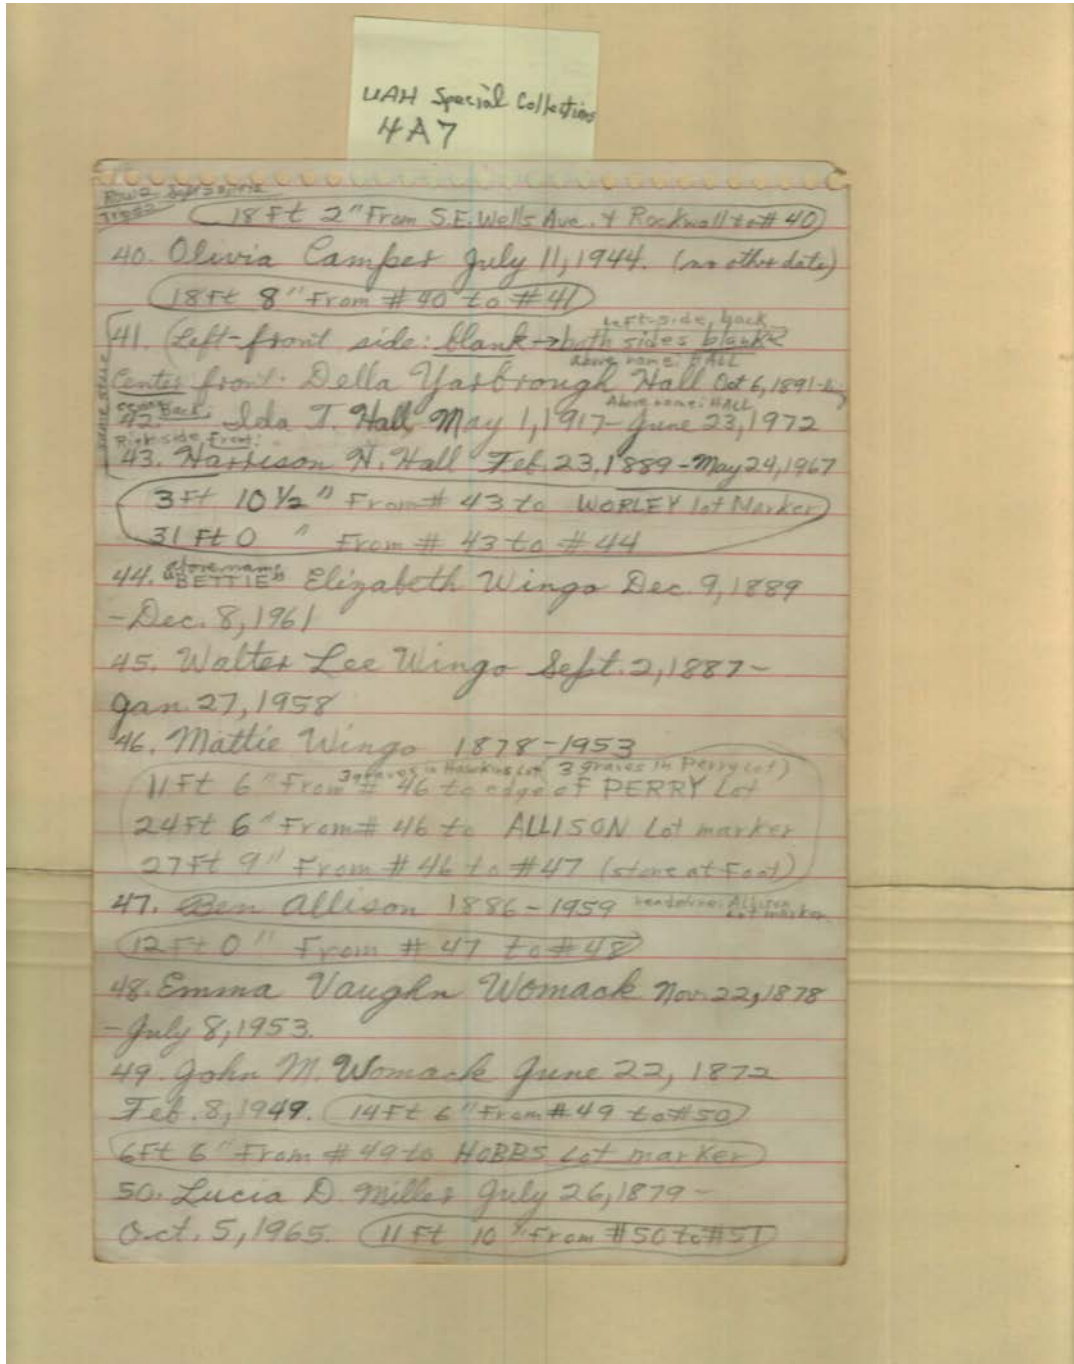 UAH Special Collections
4A7
Row 2
Trees
18 Ft 2" From S.E. Wells Ave. + Rockwall to # 40
40. Olivia Camper July 11, 1944. (no other date)
18 Ft 8" From # 40 to # 41
Left-side, back
41. (Left-front side: blank → both sides blank
Above name: HALL
same stone
Center front: Della Yarbrough Hall Oct 6, 1891-
Above name: HALL
42. Back: Ida T. Hall May 1, 1917- June 23, 1972
Right side, Front:
43. Harrison H. Hall Feb. 23, 1889 - May 24, 1967
3 Ft 10 1/2 " From # 43 to WORLEY Lot Marker
31 Ft 0 " From # 43 to # 44
above name
44. "BETTIE" Elizabeth Wingo Dec. 9, 1889
- Dec. 8, 1961
45. Walter Lee Wingo Sept. 2, 1887 -
Jan. 27, 1958
46. Mattie Wingo 1878 - 1953
3 graves in Hawkins Lot 3 graves in Perry Lot)
11 Ft 6 " From # 46 to edge of PERRY Lot
24 Ft 6 " From # 46 to ALLISON Lot marker
27 Ft 9 " From # 46 to # 47 (stone at Foot)
47. Ben Allison 1886 - 1959 headstone: Allison
Lot marker.
12 Ft 0 " From # 47 to # 48
48. Emma Vaughn Womack Nov. 22, 1878
- July 8, 1953.
49. John M. Womack June 22, 1872
Feb. 8, 1949. 14 Ft 6 " From # 49 to # 50
6 Ft 6 " From # 49 to HOBBS Lot marker
50. Lucia D. Miller July 26, 1879 -
Oct. 5, 1965. 11 Ft 10 " From # 50 to # 51